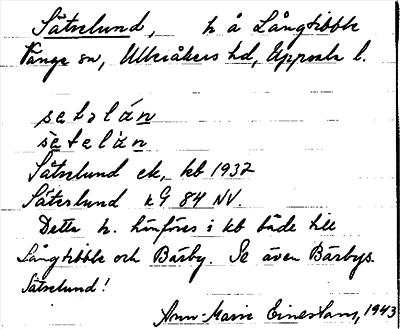 Sätselund, h å Långtibble
Vänge sn, Ulleråkers hd, Uppsala l.
sɛtəlán
sètelàn
Sätselund ek, kb 1937
Säterlund kG 84 NV.
Detta h. hänföres i kb både till
Långtibble och Bärby. Se även Bärbys.
Sätselund!
Ann-Marie Einarsson, 1943